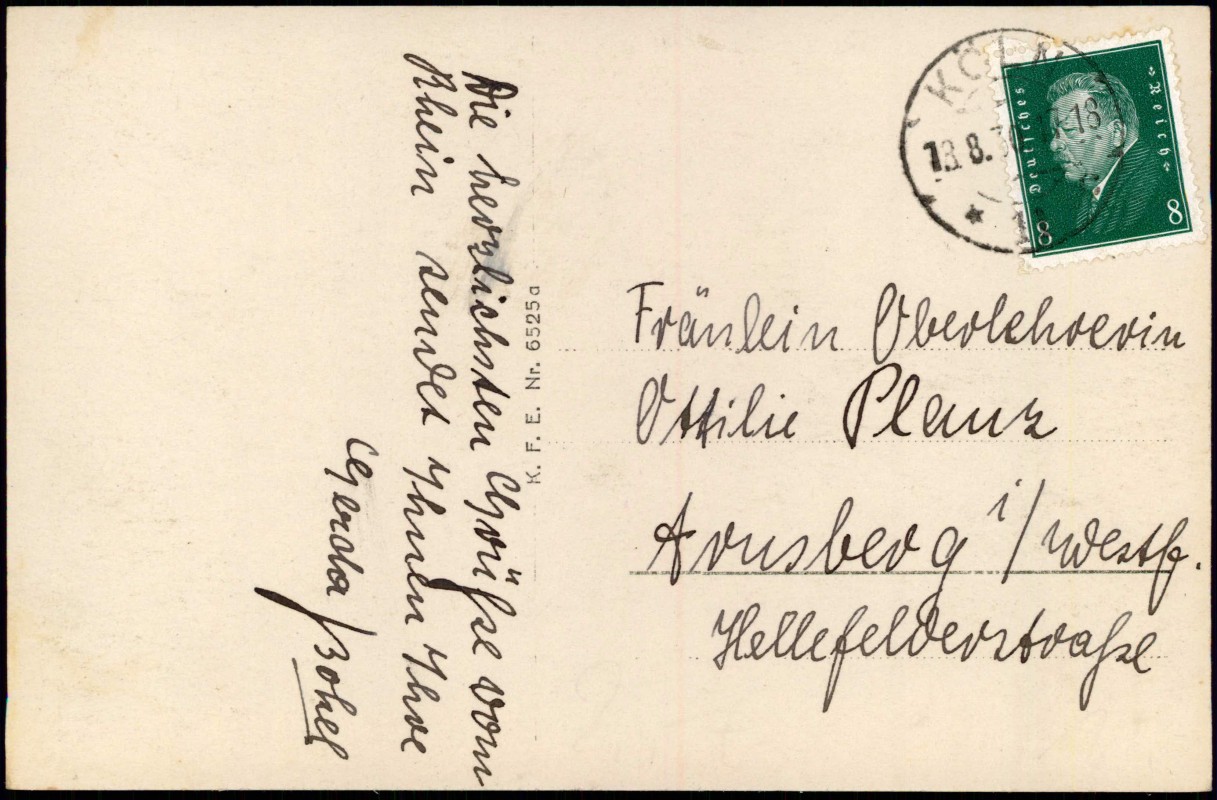 Die herzlichsten Grüße vom
Rhein sendet Ihnen Ihre
Gerda
K. F. E. Nr. 6525a
KÖLN
18.8.30
-18
*
Deutsches Reich
8 8
Fräulein Oberlehrerin
Ottilie Planz
Arnsberg i/Westf.
Hellefelderstraße